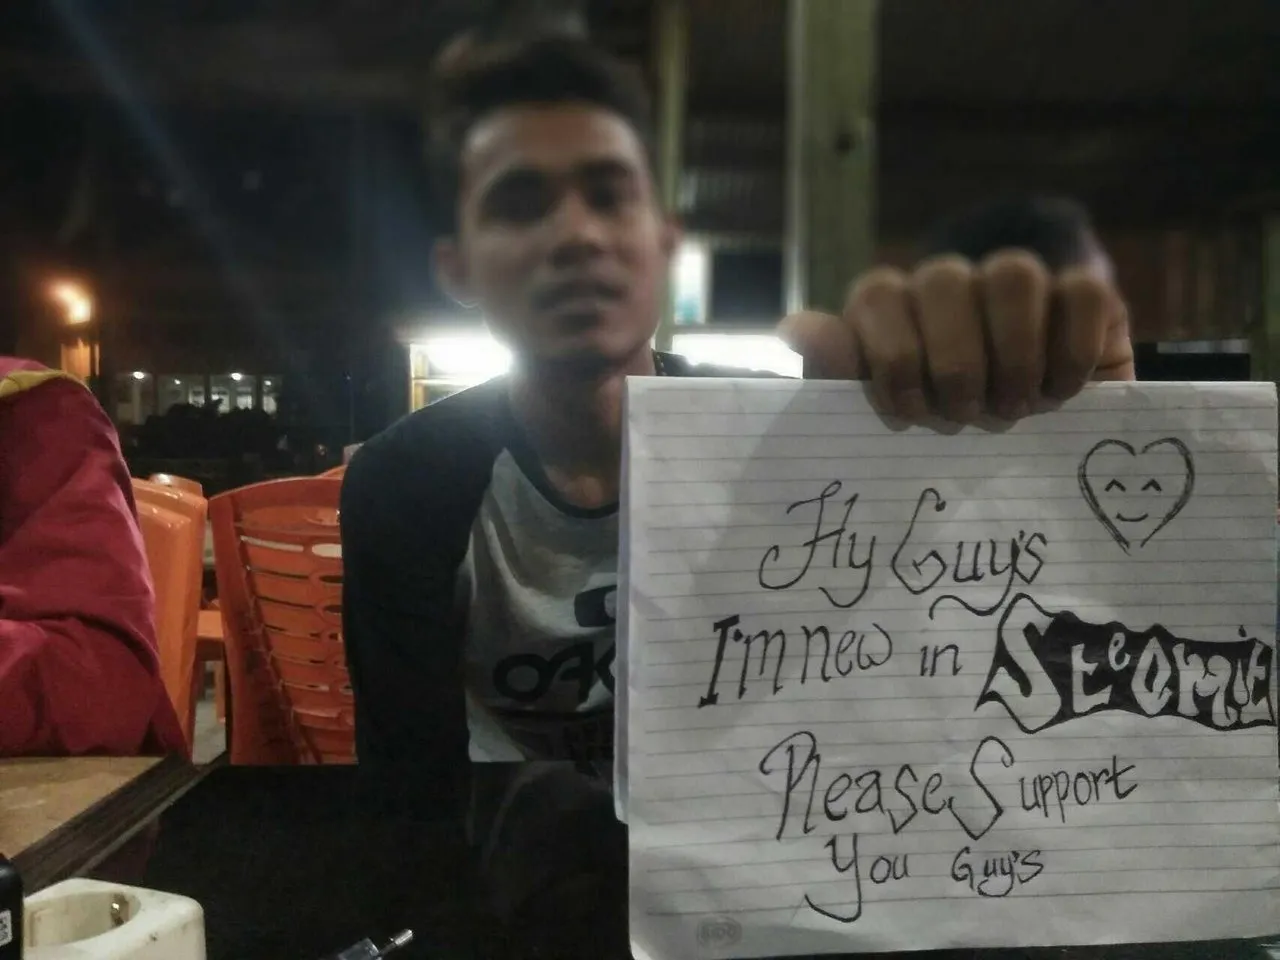 Hy Guy's
I'm new in Steemit
Please Support
You Guy's
OAK
SIDU